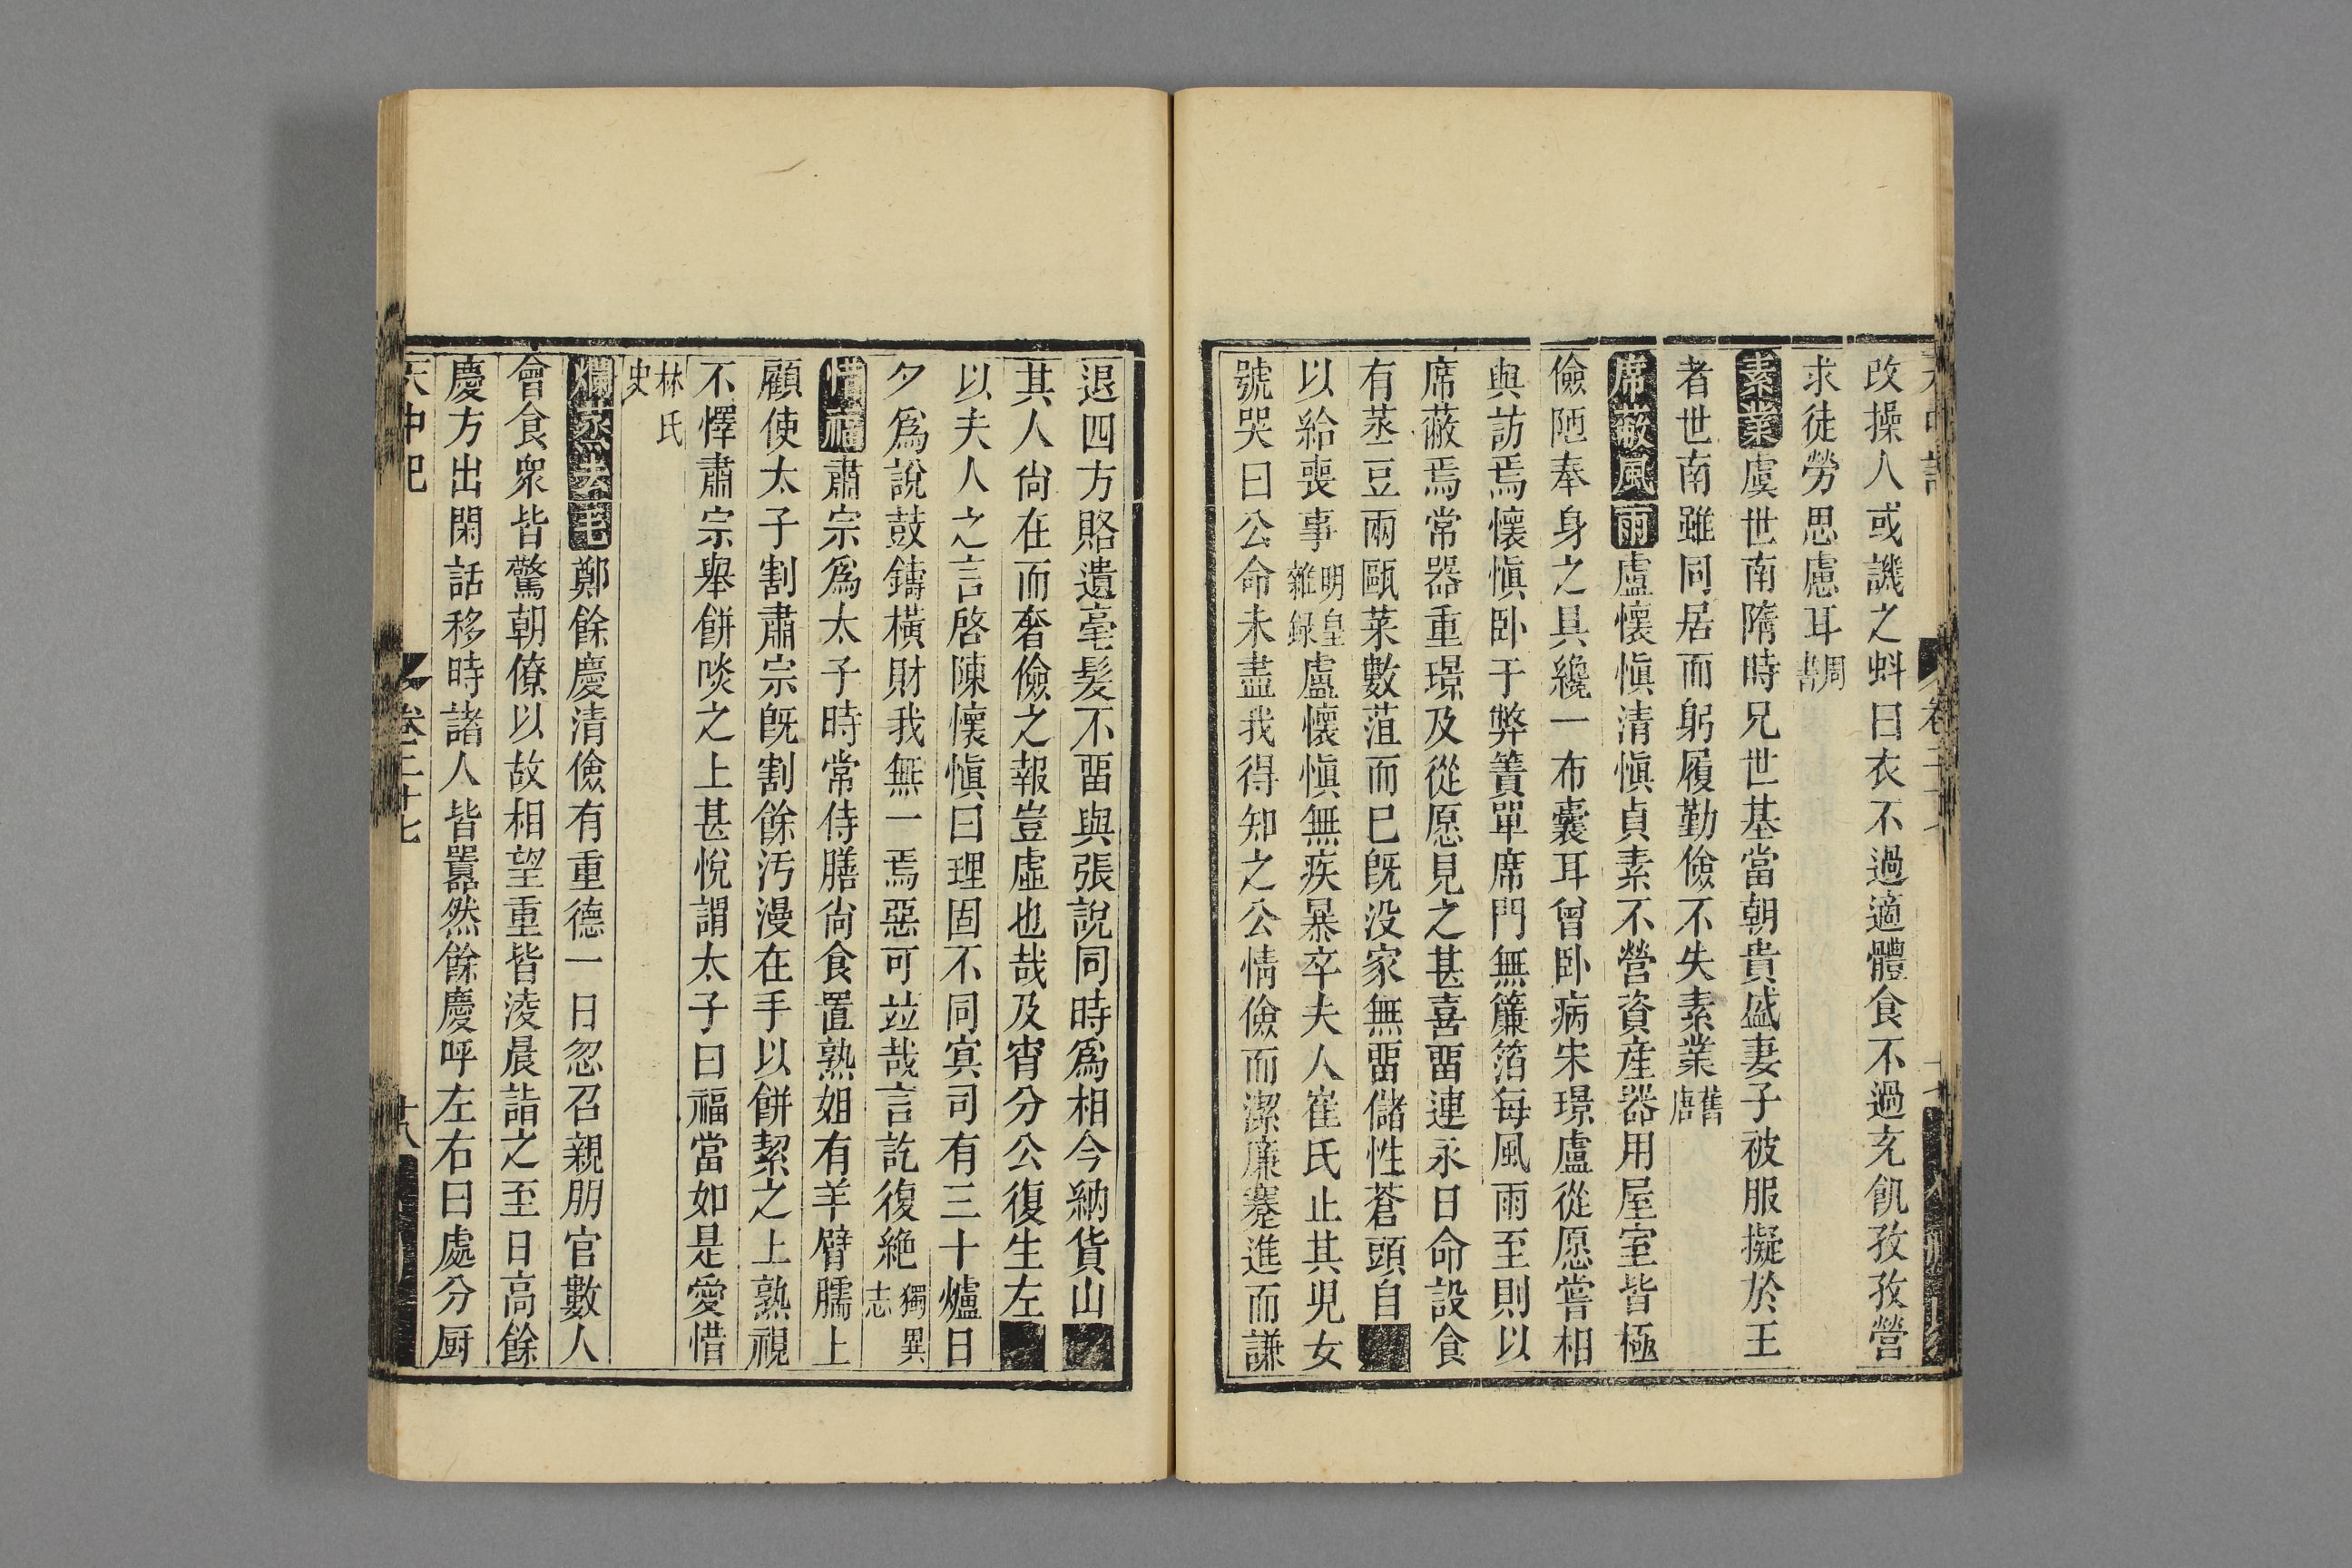 改操人或譏之蚪曰衣不過適體食不過充飢孜孜營
求徒勞思慮耳周書
素業虞世南隋時兄世基當朝貴盛妻子被服擬於王
者世南雖同居而躬履勤儉不失素業舊唐
席蔽風雨盧懷愼清愼貞素不營資産器用屋室皆極
儉陋奉身之具纔一布囊耳曾卧病宋璟盧從愿嘗相
與訪焉懷愼卧于弊簀單席門無簾箔每風雨至則以
席蔽焉常器重璟及從愿見之甚喜畱連永日命設食
有蒸豆兩甌菜數菹而已旣没家無畱儲性蒼頭自
以給喪事明皇雜録盧懷愼無疾暴卒夫人崔氏止其兒女
號哭曰公命未盡我得知之公情儉而潔廉蹇進而謙
退四方賂遺毫髮不畱與張說同時爲相今納貨山
其人尙在而奢儉之報豈虛也哉及宵分公復生左
以夫人之言啓陳懷愼曰理固不同㝠司有三十爐日
夕爲說鼓鑄橫財我無一焉惡可竝哉言訖復絶獨異志
惜福肅宗爲太子時常侍膳尙食置熟俎有羊臂臑上
顧使太子割肅宗旣割餘汚漫在手以餅絜之上熟視
不懌肅宗舉餅啖之上甚悅謂太子曰福當如是愛惜
林氏史
爛烝去毛鄭餘慶清儉有重德一日忽召親朋官數人
會食衆皆驚朝僚以故相望重皆淩晨詣之至日高餘
慶方出閑話移時諸人皆囂然餘慶呼左右曰處分厨
天中记 卷二十七 十八